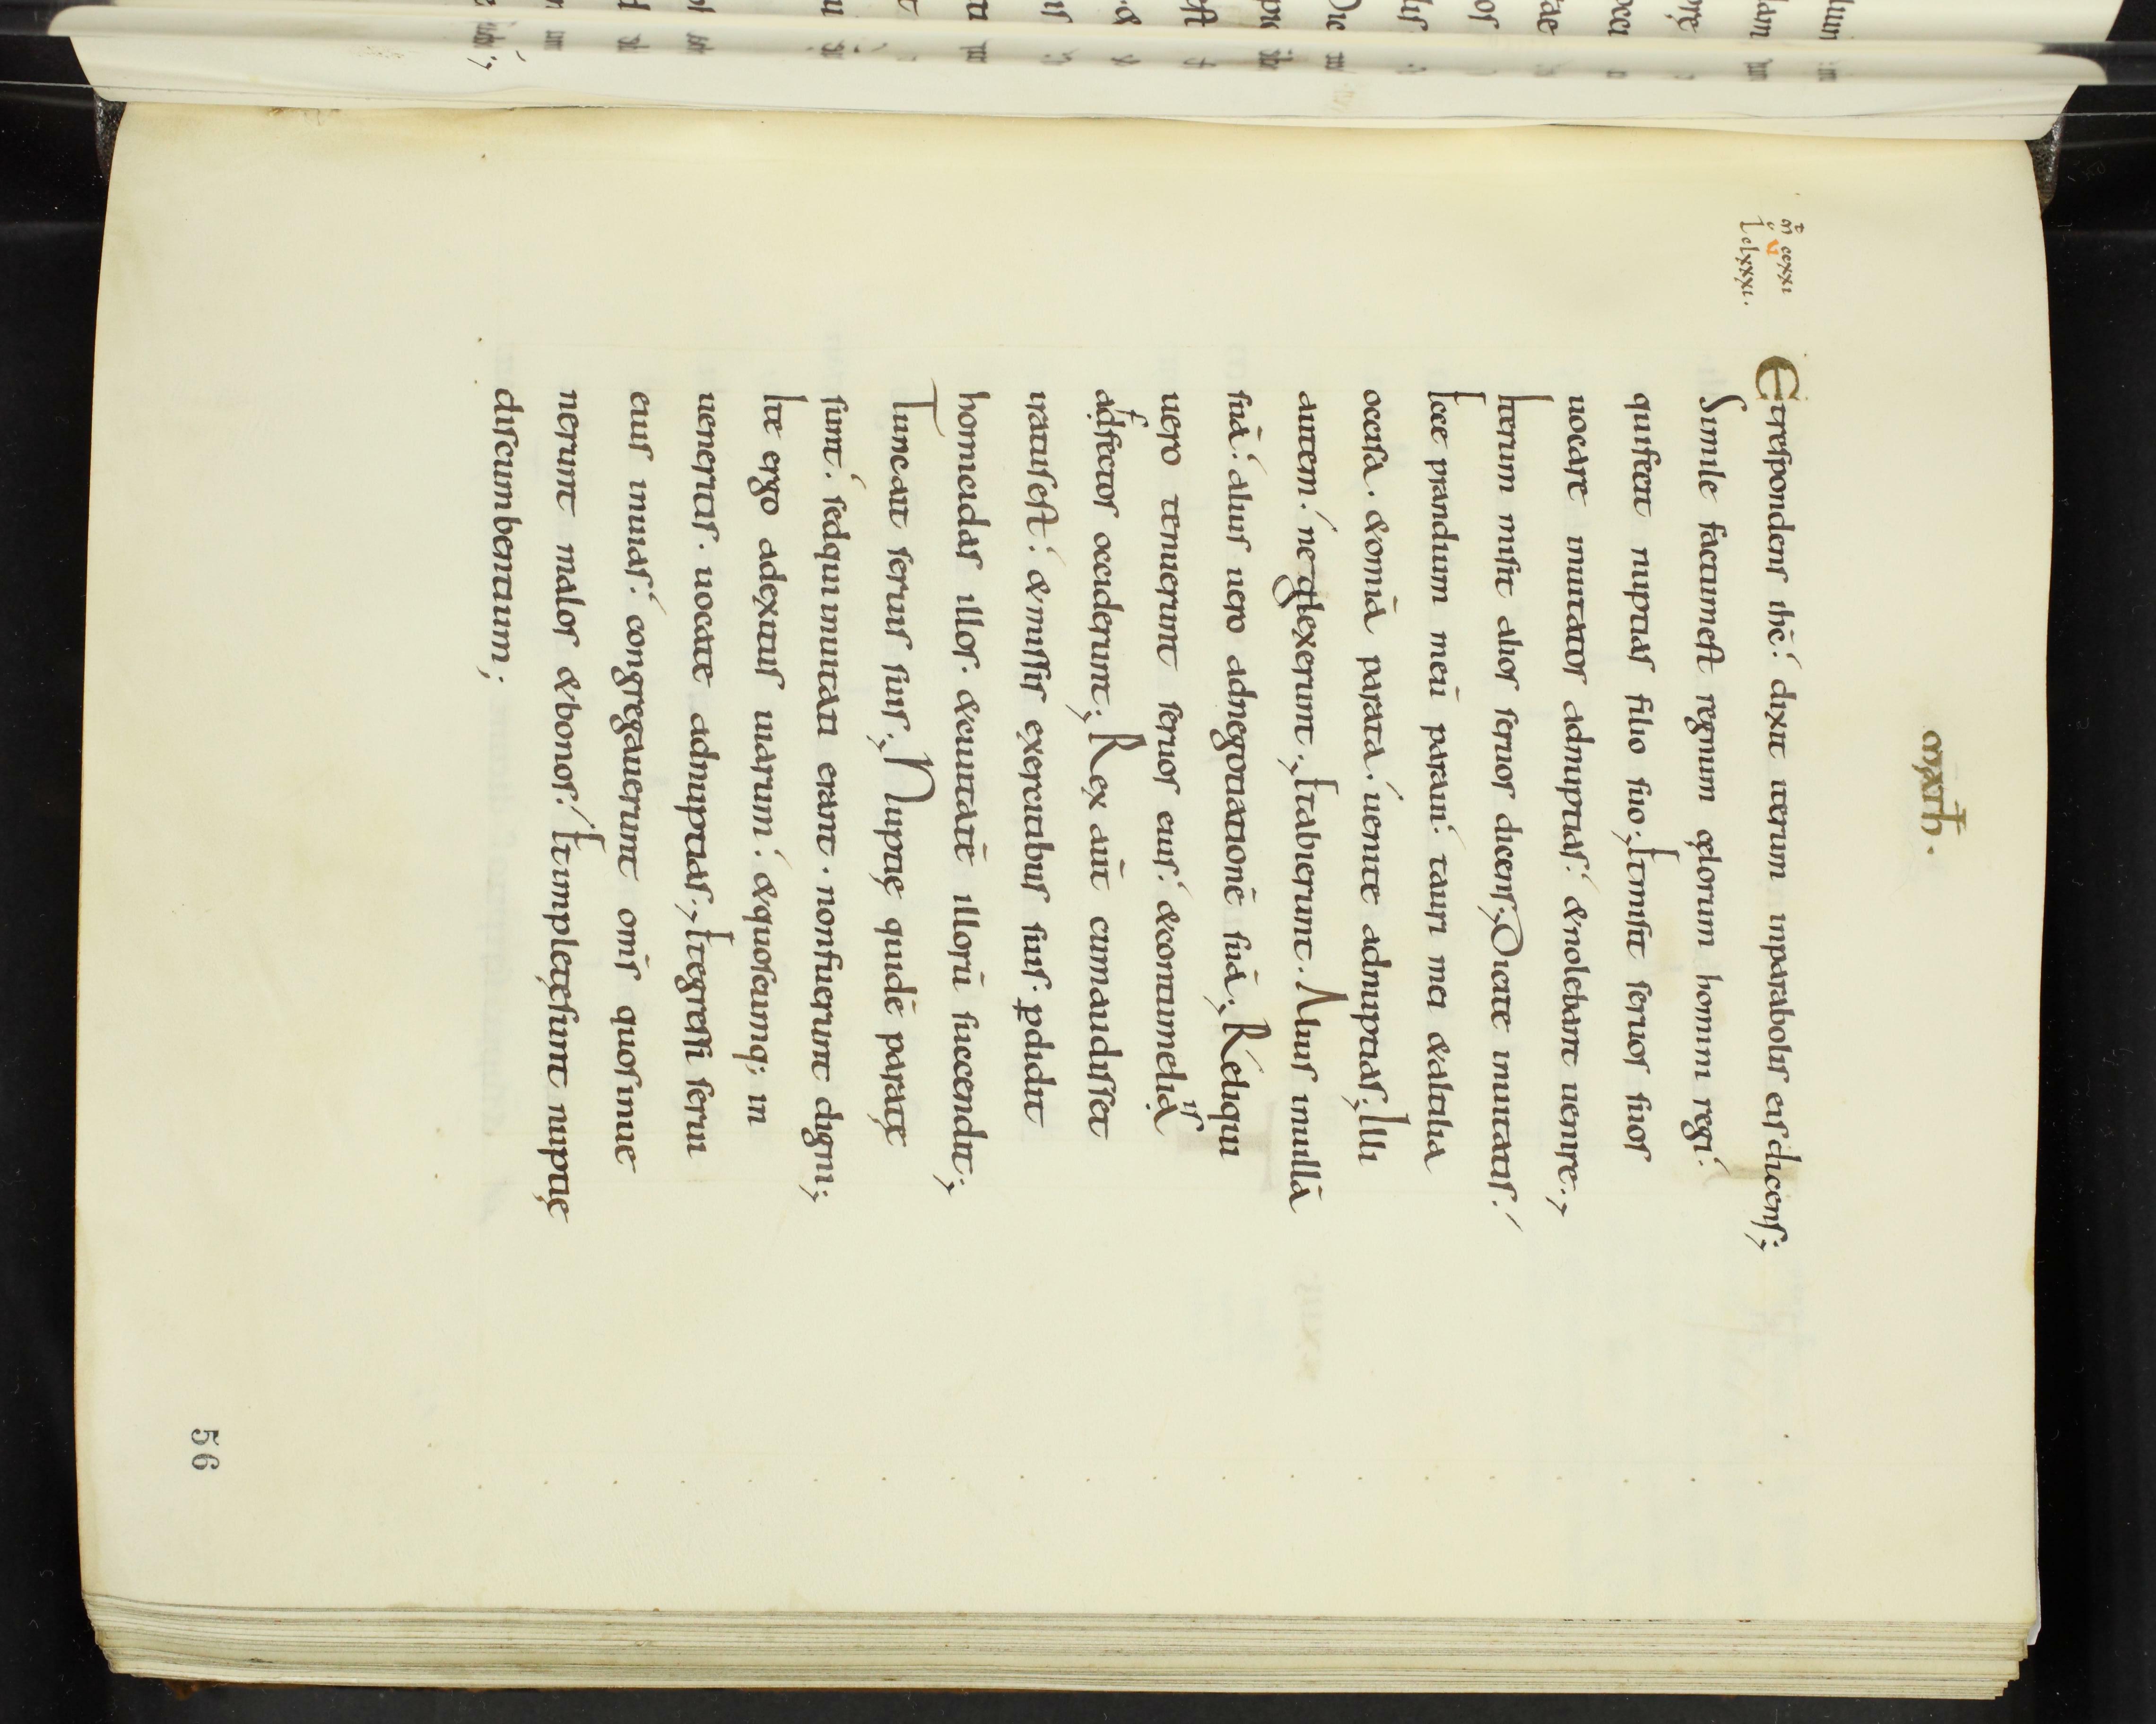 MATH.
M CCXXI
V
L CLXXXI.
Etrespondens ihc̄: dixit iterum inparabolis eisdicens;
Simile factumest regnum cęlorum homini regi:
quifecit nuptias filio suo; Etmisit seruos suos
uocare inuitatos adnuptias: & nolebant uenire;
Iterum misit alios seruos dicens; Dicite inuitatis:
Ecce prandium meū paraui: tauri mei & altilia
occisa. & omīa parata: uenite adnuptias; Illi
autem: neglexerunt; Etabierunt. Alius inuillā
suā: alius uero adnegotiationē suā; Reliqui
uero tenuerunt seruos eius: & contumeliạis
adfectos occiderunt; Rex aūt cumaudisset
iratusest: & missis exercitibus suis: ꝑdidit
homicidas illos. & ciuitatē illorū succendit;
Tuncait seruis suis; Nuptię quidē paratę
sunt: sedquiinuitati erant. nonfuerunt digni;
Ite ergo adexitus uiarum: & quoscumq; in
ueneritis. uocate adnuptias; Etegressi serui
eius inuias: congregauerunt om̄s quosinue
nerunt malos & bonos: Etimpletęsunt nuptię
discumbentium;
56